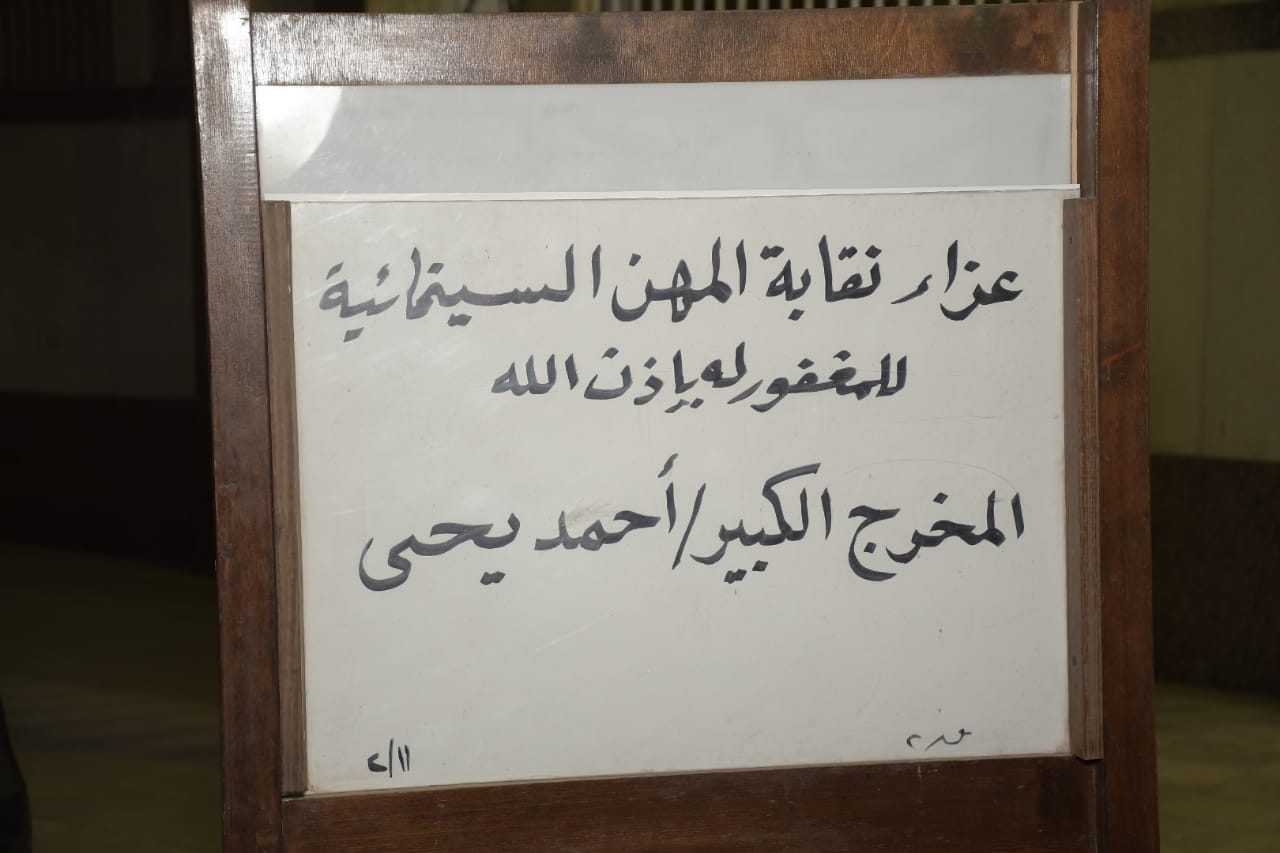 عزاء نقابة المهن السينمائية
للمغفور له بإذن الله
المخرج الكبير/أحمد يحيى
٢/١١